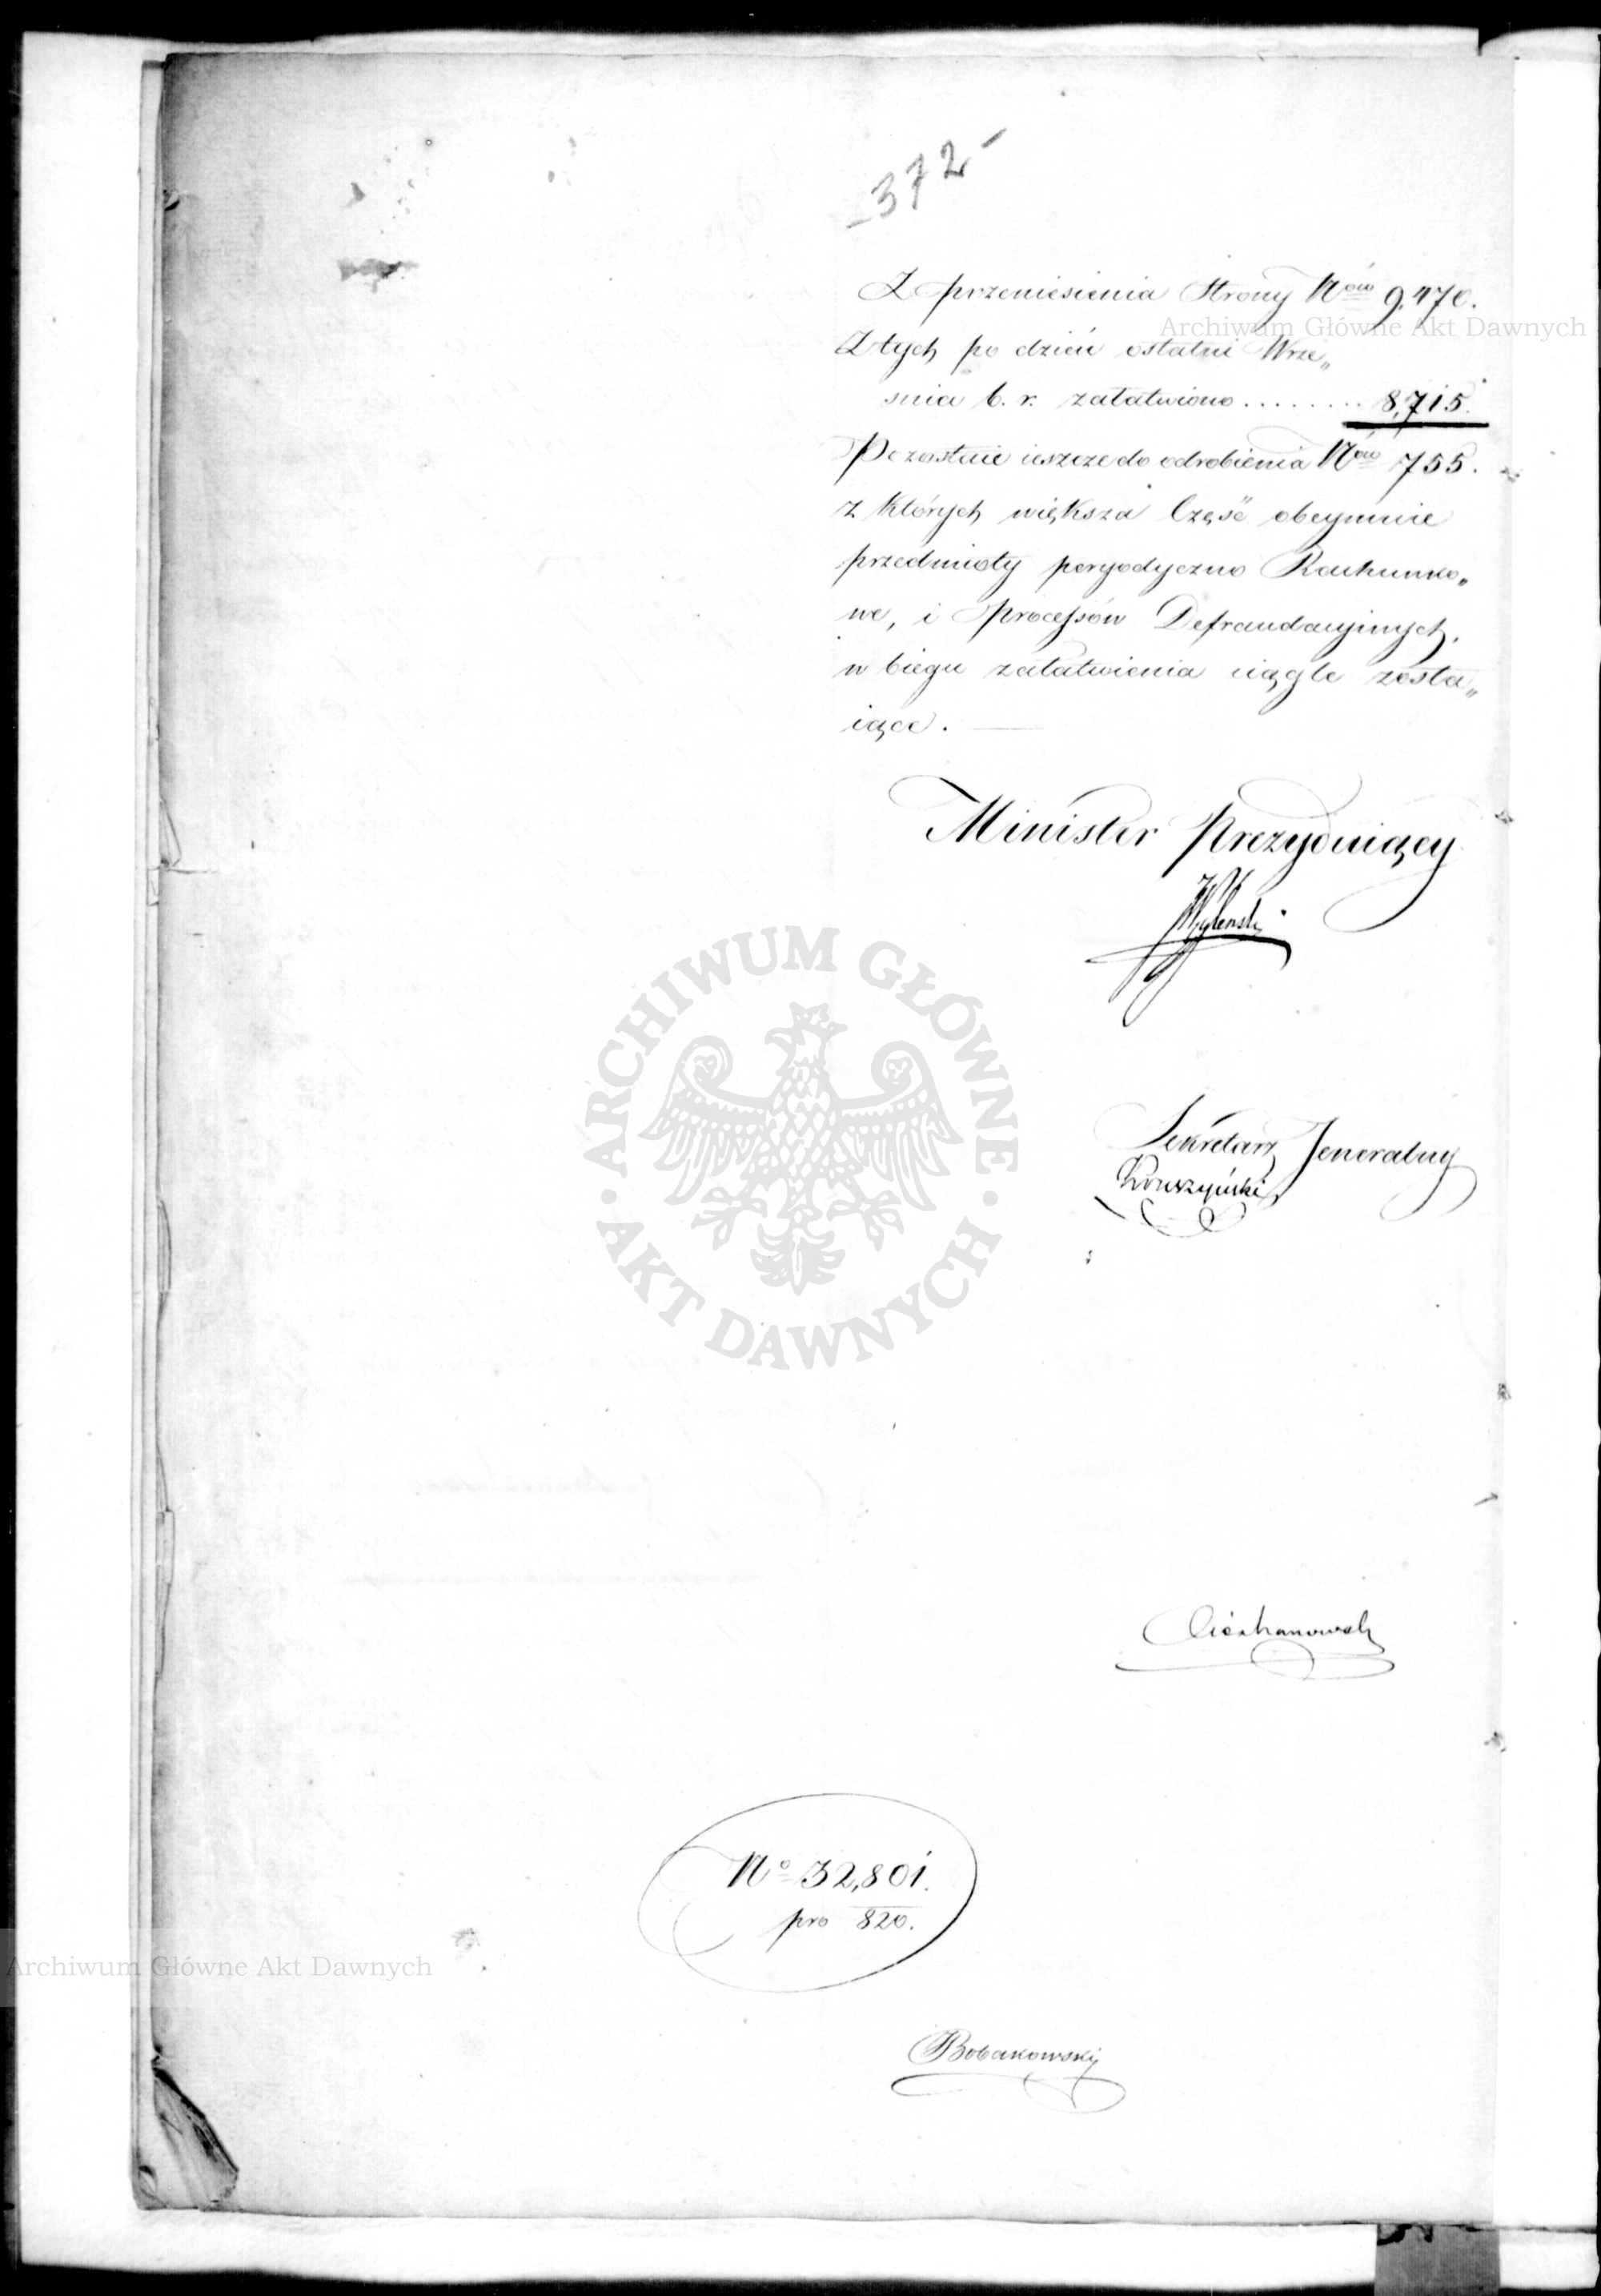 -372-
Z przeniesienia Strony Nów 9,470.
Z tych po dzień ostatni Wrze„
śnia b. r. załatwiono ........ 8,715.
Pozostaie ieszcze do odrobienia Nów 755.
z których większa Część obeymuie
przedmioty peryodyczno Rachunko„
we, i Processów Defraudacyinych,
w biegu załatwienia ciągle zosta„
iące. —
Minister Prezyduiący
Sekretarz Jeneralny
Kruszyński
Ciechanowski
No 32,801.
pro 820.
Bobakowski
Archiwum Główne Akt Dawnych
ARCHIWUM GŁÓWNE · AKT DAWNYCH ·
Archiwum Główne Akt Dawnych